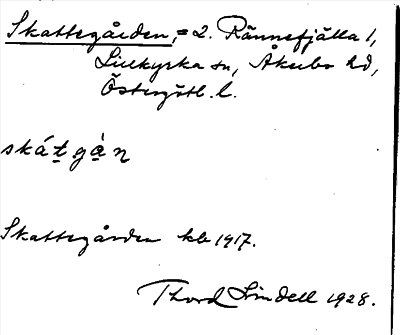 Skattegården, = 2. Rännefjälla 1,
Lillkyrka sn, Åkerbo hd,
Östergötl. l.
skátgàn
Skattegården kb 1917.
Thord Lindell 1928.